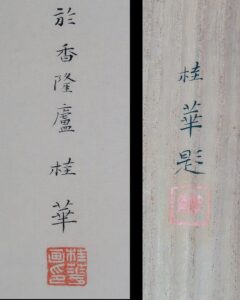 於香隆廬桂華
桂華畫印
桂華題